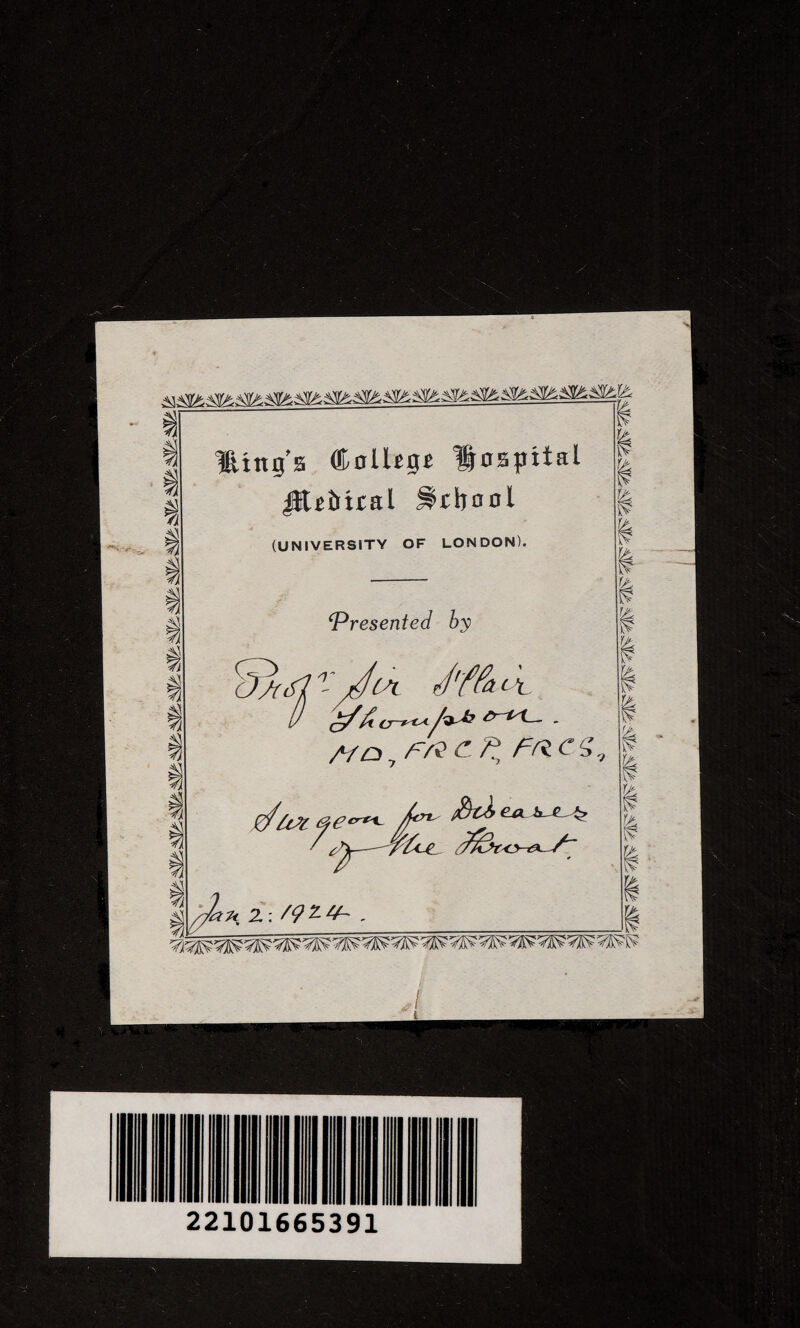 King's College Hospital
Medical School
(UNIVERSITY OF LONDON).
Presented by
Profr- Sir StClair
Thompson .
MD, FRCP, FRCS,
Surgeon for Diseases
of the Throat
Jan 2: 1924 .
22101665391